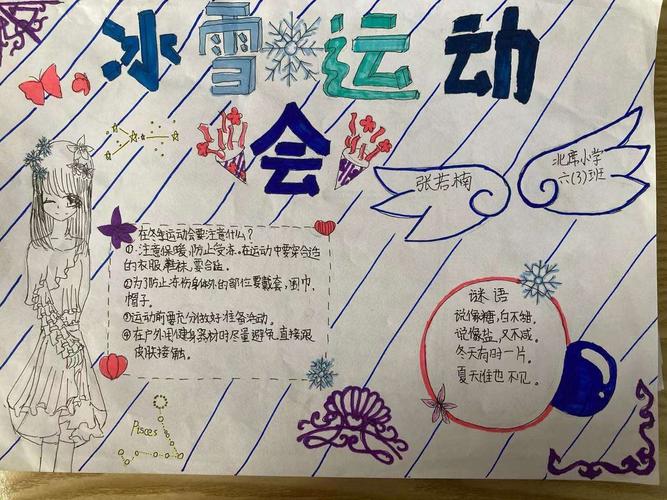 冰雪运动
会
张若楠
北席小学
六(3)班
在冬季运动会要注意什么?
①注意保暖,防止受冻。在运动中要穿合适
的衣服,鞋袜,要合适。
②为了防止冻伤身体外的部位要戴套,围巾,
帽子。
③运动前要充分做好准备活动。
④在户外用健身器材时尽量避免直接跟
皮肤接触。
谜语
说像糖,白不甜。
说像盐,又不咸。
冬天有时一片。
夏天谁也不见。
Pisces